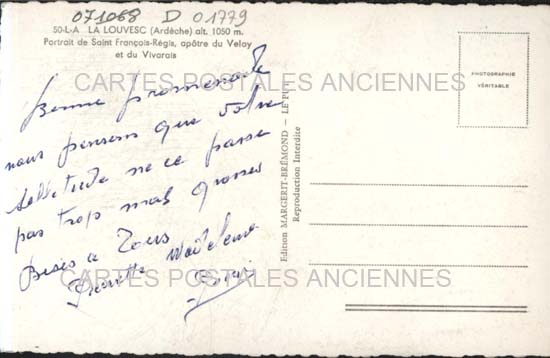 071068 D 01779
50-L-A LA LOUVESC (Ardèche) alt. 1050 m.
Portrait de Saint François-Régis, apôtre du Velay
et du Vivarais
CARTES POSTALES ANCIENNES
Bonne promenade
nous pensons que votre
solitude ne ce passe
pas trop mal grosses
Bises a Tous
Pierrette Madeleine
Edition MARGERIT-BREMOND — LE PUY
Reproduction Interdite
PHOTOGRAPHIE
VÉRITABLE
CARTES POSTALES ANCIENNES